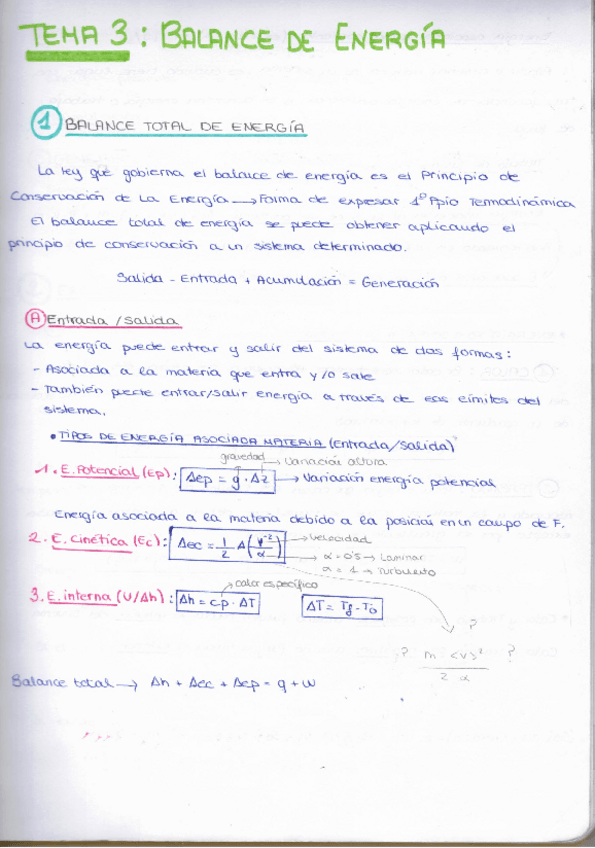 TEMA 3 : BALANCE DE ENERGÍA
1 BALANCE TOTAL DE ENERGÍA
La ley que gobierna el balance de energía es el Principio de
Conservación de La Energía → Forma de expresar 1º Ppio Termodinámica
El balance total de energía se puede obtener aplicando el
principio de conservación a un sistema determinado.
Salida - Entrada + Acumulación = Generación
A Entrada / Salida
La energía puede entrar y salir del sistema de dos formas:
- Asociada a la materia que entra y/o sale
- También puede entrar/salir energía a través de los límites del
sistema.
• TIPOS DE ENERGÍA ASOCIADA MATERIA (Entrada/Salida)
gravedad → Variación altura
1. E. Potencial (Ep): Δep = g · Δz → Variación energía potencial
Energía asociada a la materia debido a la posición en un campo de F.
2. E. Cinética (Ec): Δec = 1/2 Δ(v²/α) → Velocidad
α = 0'5 → Laminar
α = 1 → Turbulento
calor específico
3. E. interna (U/Δh): Δh = cp · ΔT ΔT = Tf - To
?
? m <v>² ?
2 α
Balance total → Δh + Δec + Δep = q + w